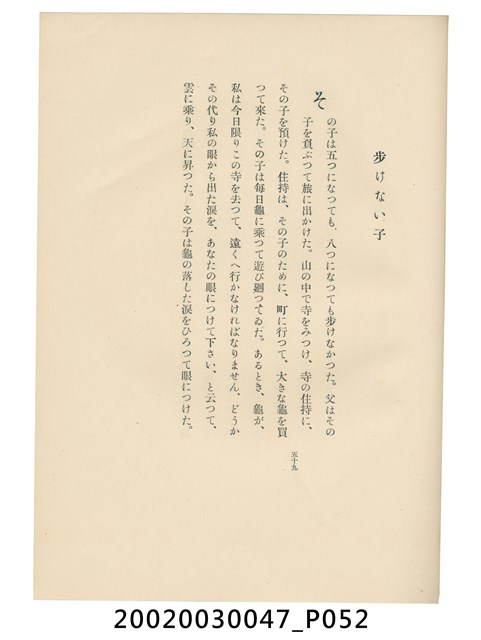 歩けない子
その子は五つになつても、八つになつても歩けなかつた。父はその
子を負ぶつて旅に出かけた。山の中で寺をみつけ、寺の住持に、
その子を預けた。住持は、その子のために、町に行つて、大きな龜を買
つて來た。その子は毎日龜に乘つて遊び廻つてゐた。あるとき、龜が、
私は今日限りこの寺を去つて、遠くへ行かなければなりません、どうか
その代り私の眼から出た淚を、あなたの眼につけて下さい、と云つて、
雲に乘り、天に昇つた。その子は龜の落した淚をひろつて眼につけた。
五十九
20020030047_P052